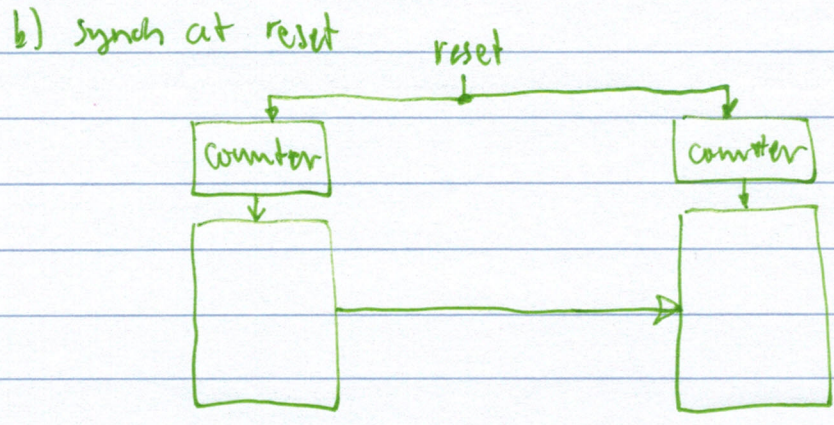 b) synch at reset
reset
counter
counter